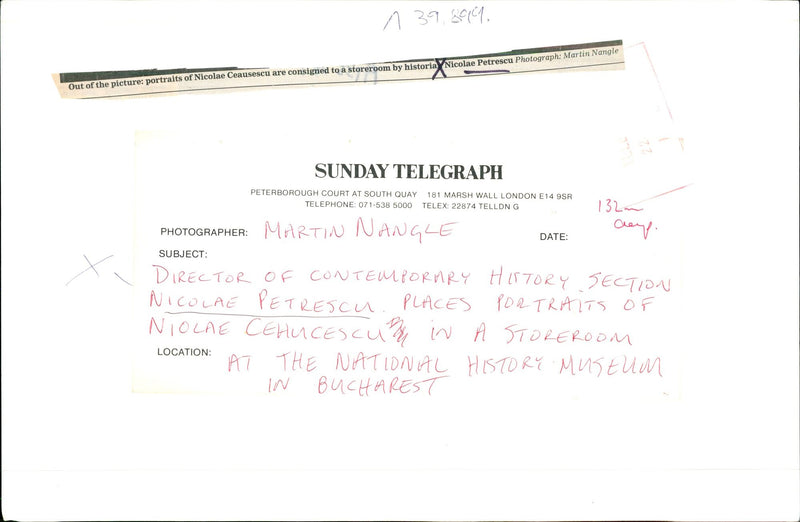 39,899.
Out of the picture: portraits of Nicolae Ceausescu are consigned to a storeroom by historian Nicolae Petrescu Photograph: Martin Nangle
SUNDAY TELEGRAPH
PETERBOROUGH COURT AT SOUTH QUAY 181 MARSH WALL LONDON E14 9SR
TELEPHONE: 071-538 5000 TELEX: 22874 TELLDN G
PHOTOGRAPHER: MARTIN NANGLE
DATE:
SUBJECT:
DIRECTOR OF CONTEMPORARY HISTORY SECTION
NICOLAE PETRESCU. PLACES PORTRAITS OF
NIOLAE CEHUCESCU IN A STOREROOM
LOCATION: AT THE NATIONAL HISTORY MUSEUM
IN BUCHAREST